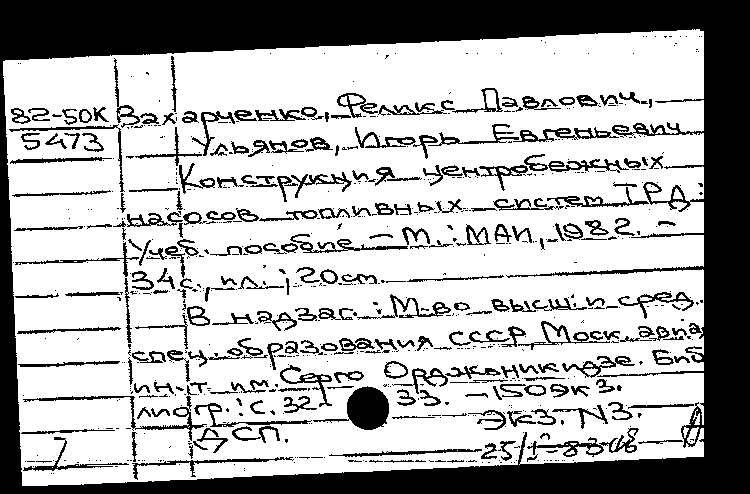 82-50К Захарченко, Феликс Павлович,
5473 Ульянов, Игорь Евгеньевич
Конструкция центробежных
насосов топливных систем ТРД:
Учеб. пособие. – М.: МАИ, 1982. –
34 с., ил.; 20 см.
В надзаг.: М-во высш. и сред.
спец. образования СССР, Моск. авиац
ин-т им. Серго Орджоникидзе. Биб
лиогр.: с. 32 33. – 150 экз.
Экз. N3.
ДСП.
25/I-83